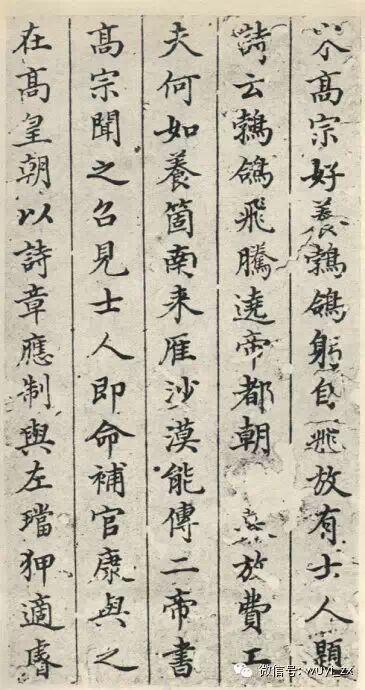 高宗好養鵓鴿躬自飛放有士人題
詩云鵓鴿飛騰遶帝都朝放費工
夫何如養箇南来雁沙漠能傳二帝書
髙宗聞之召見士人即命補官康與之
在髙皇朝以詩章應制與左璫狎適睿
微信号: wuyi_zx